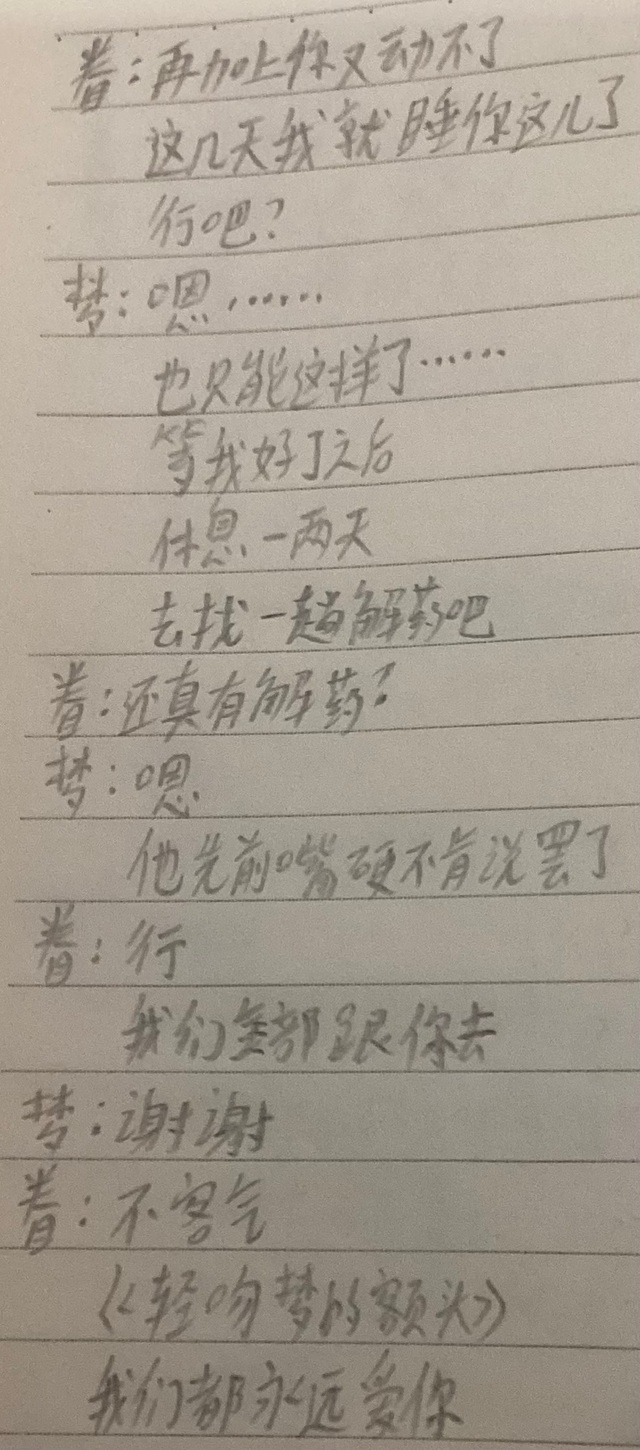 眷：再加上你又动不了
这几天我就睡你这儿了
行吧？
梦：嗯……
也只能这样了……
等我好了之后
休息一两天
去找一趟解药吧
眷：还真有解药？
梦：嗯
他先前嘴硬不肯说罢了
眷：行
我们全部跟你去
梦：谢谢
眷：不客气
《轻吻梦的额头》
我们都永远爱你